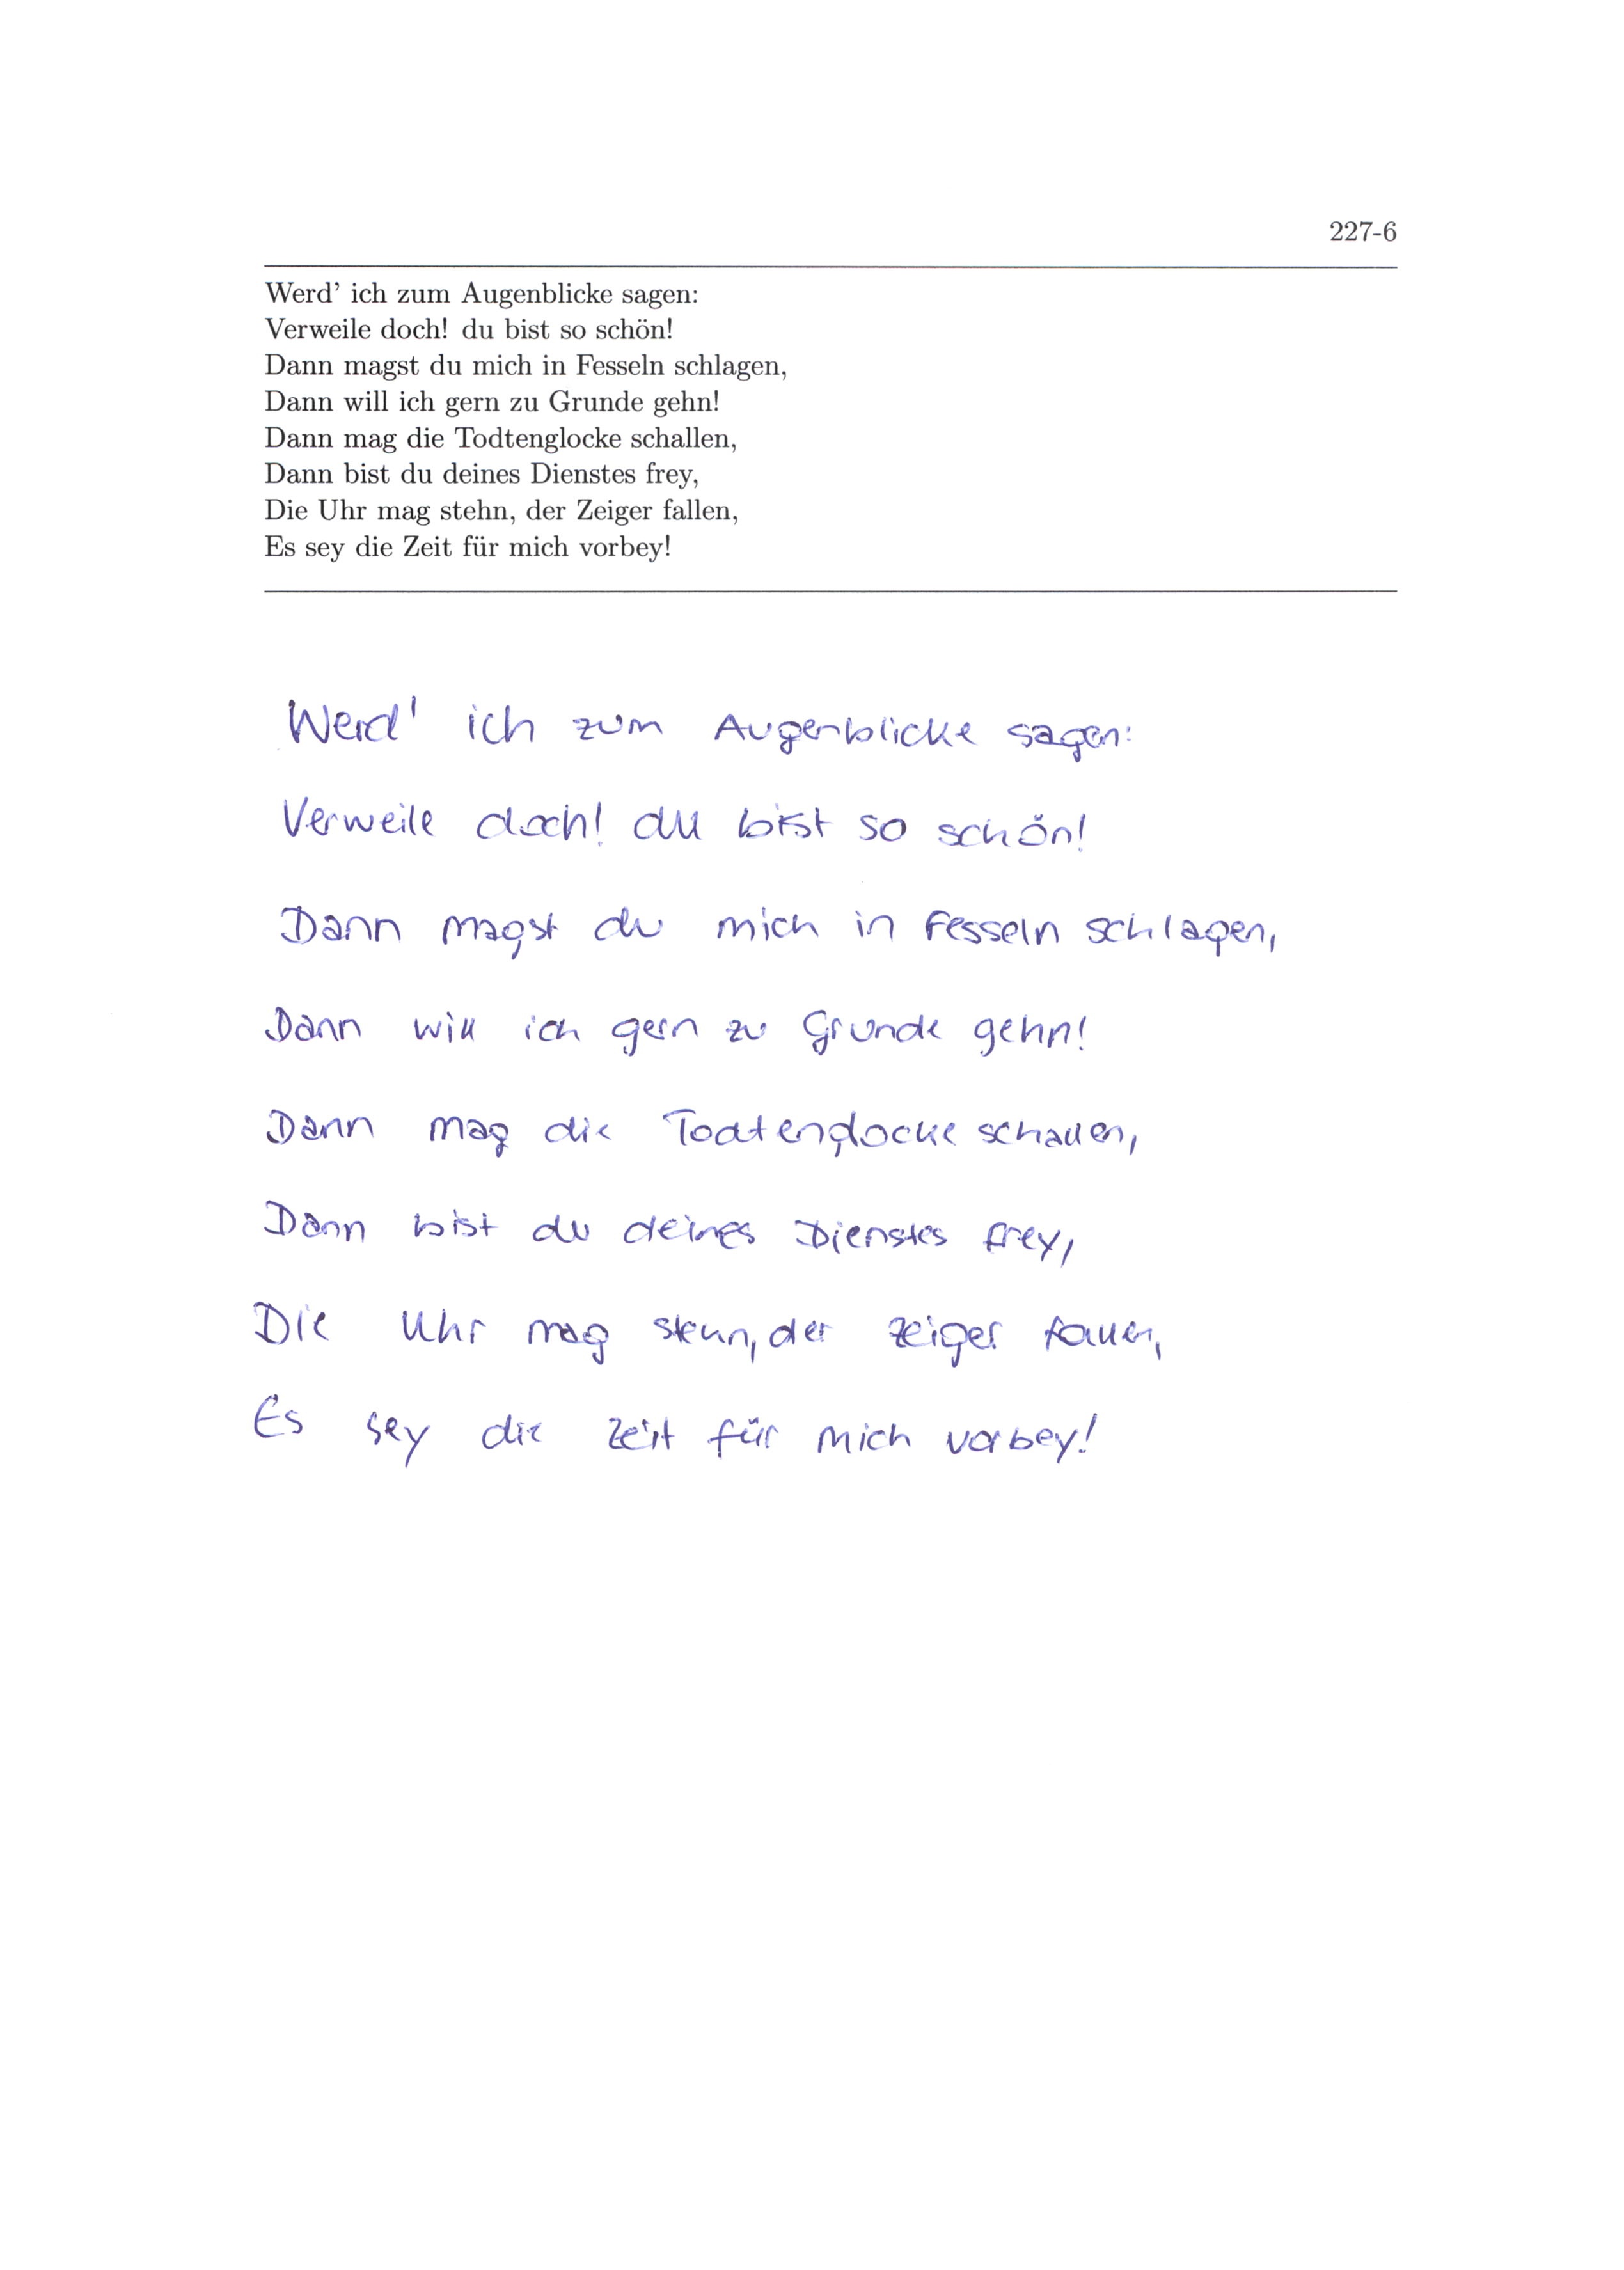 227-6
Werd’ ich zum Augenblicke sagen:
Verweile doch! du bist so schön!
Dann magst du mich in Fesseln schlagen,
Dann will ich gern zu Grunde gehn!
Dann mag die Todtenglocke schallen,
Dann bist du deines Dienstes frey,
Die Uhr mag stehn, der Zeiger fallen,
Es sey die Zeit für mich vorbey!
Werd' ich zum Augenblicke sagen:
Verweile doch! du bist so schön!
Dann magst du mich in Fesseln schlagen,
Dann will ich gern zu Grunde gehn!
Dann mag die Todtenglocke schallen,
Dann bist du deines Dienstes frey,
Die Uhr mag stehn, der Zeiger fallen,
Es sey die Zeit für mich vorbey!